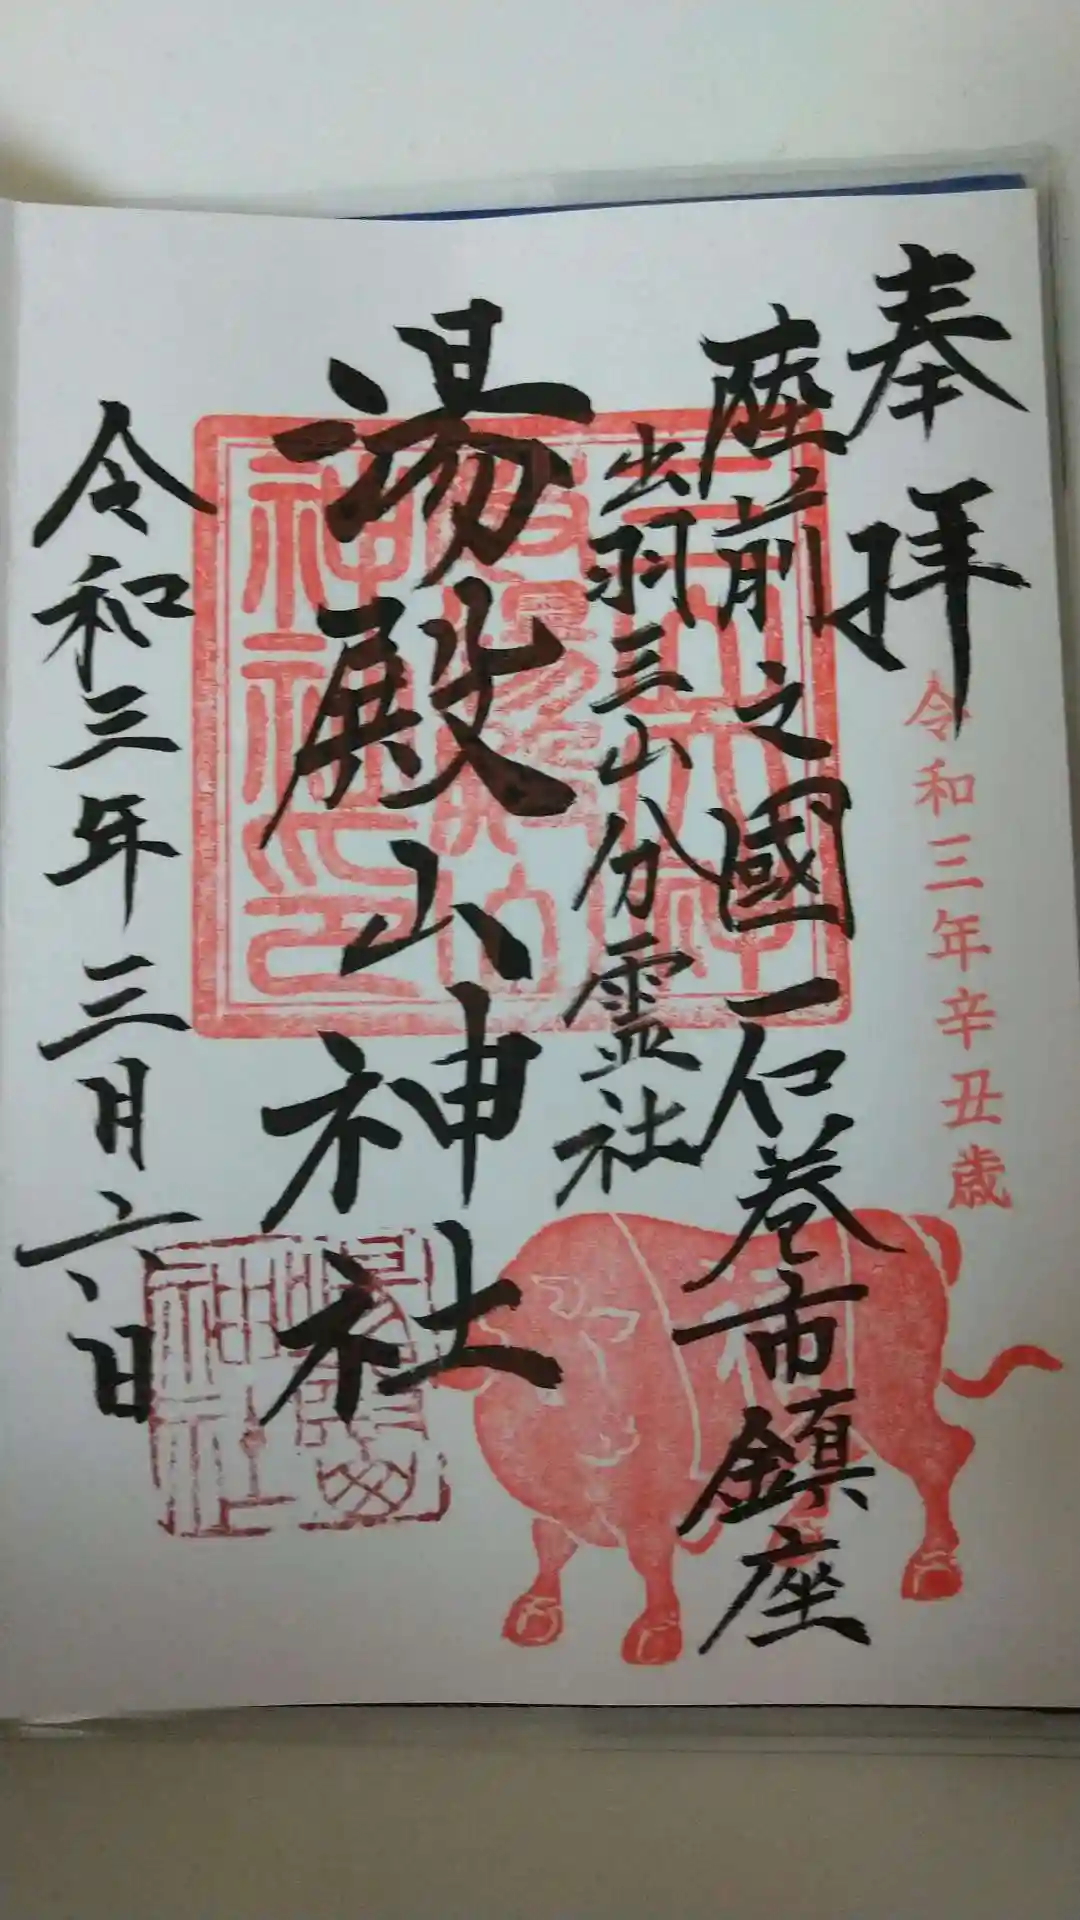 奉拝
令和三年辛丑歳
陸前之國石巻市鎮座
出羽三山分霊社
湯殿山神社
令和三年三月六日